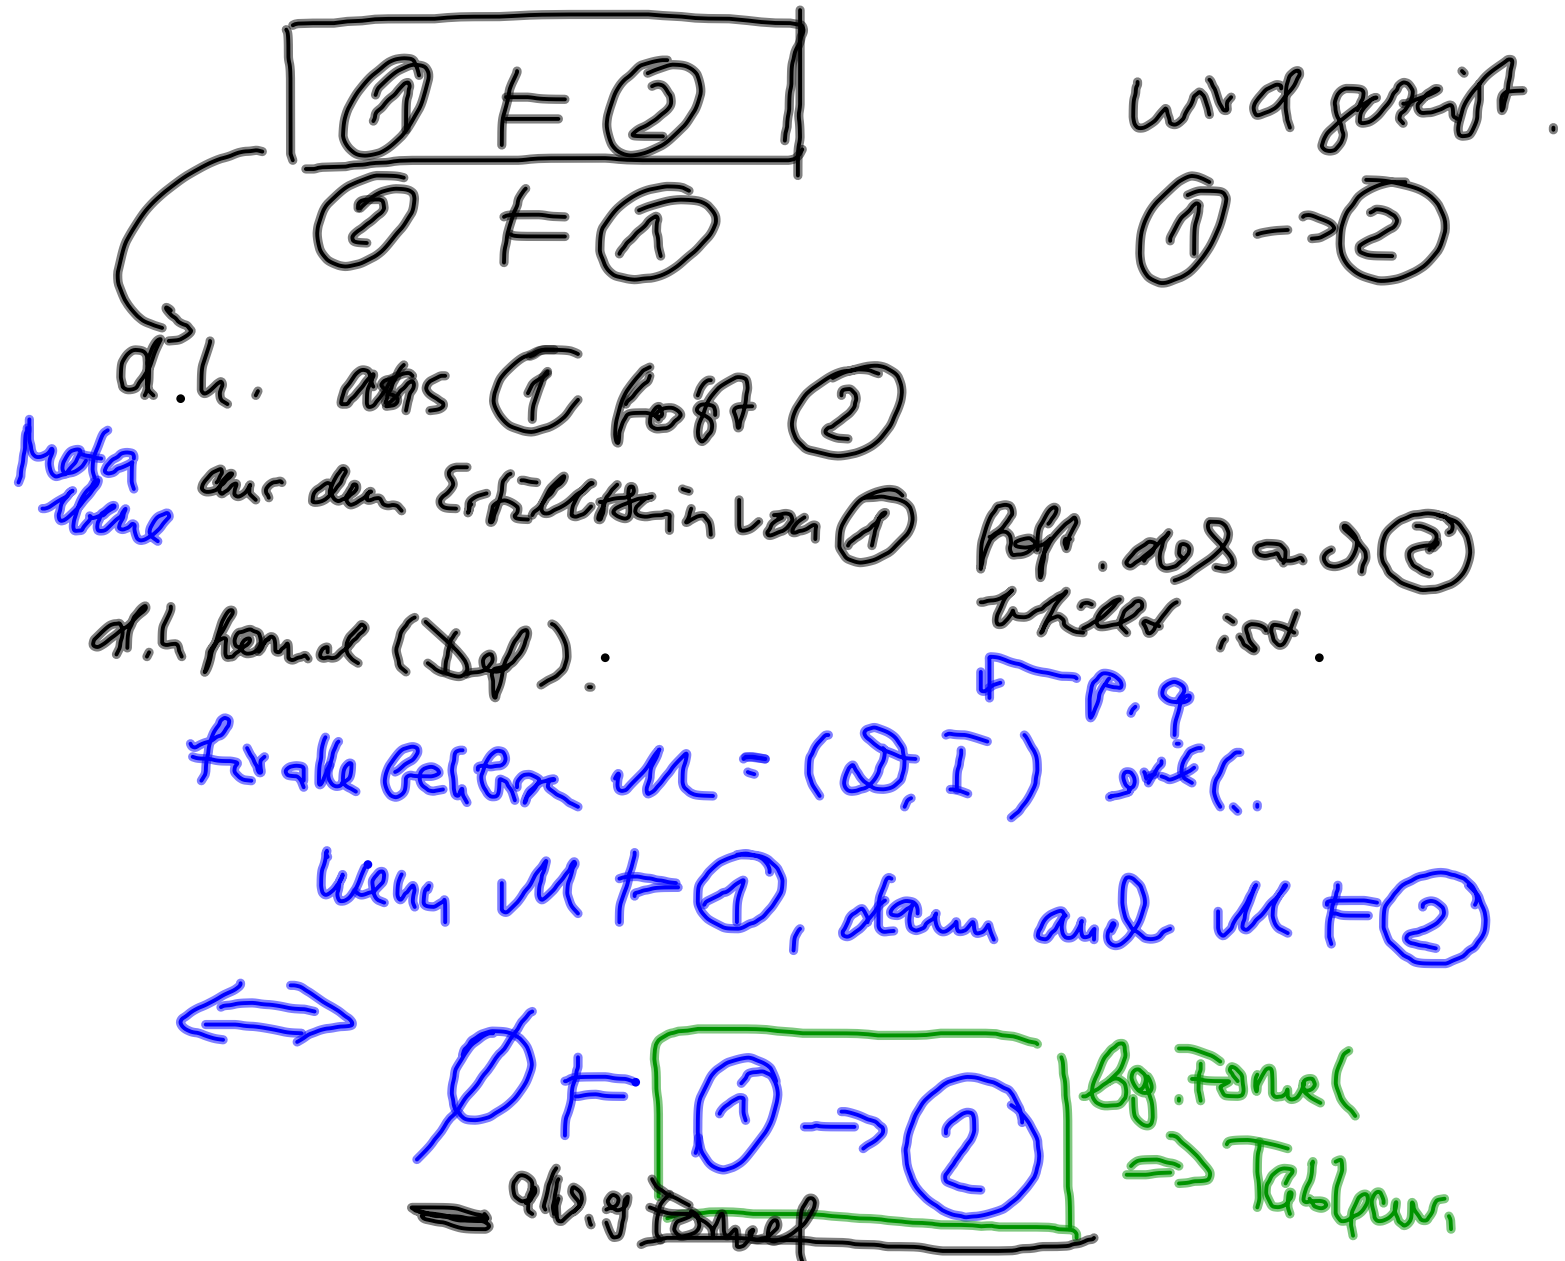 ① ⊨ ② wird gezeigt.
② ⊨ ① ① → ②
d.h. aus ① folgt ②
Meta Ebene
aus dem Erfülltsein von ① folgt, daß auch ② erfüllt ist.
d.h. formal (Def).:
p, q
Für alle bel. M = (D, I)
wenn M ⊨ ①, dann auch M ⊨ ②
⟺ ∅ ⊨ ① → ② Formel
⇒ Tableau.
allg. Formel